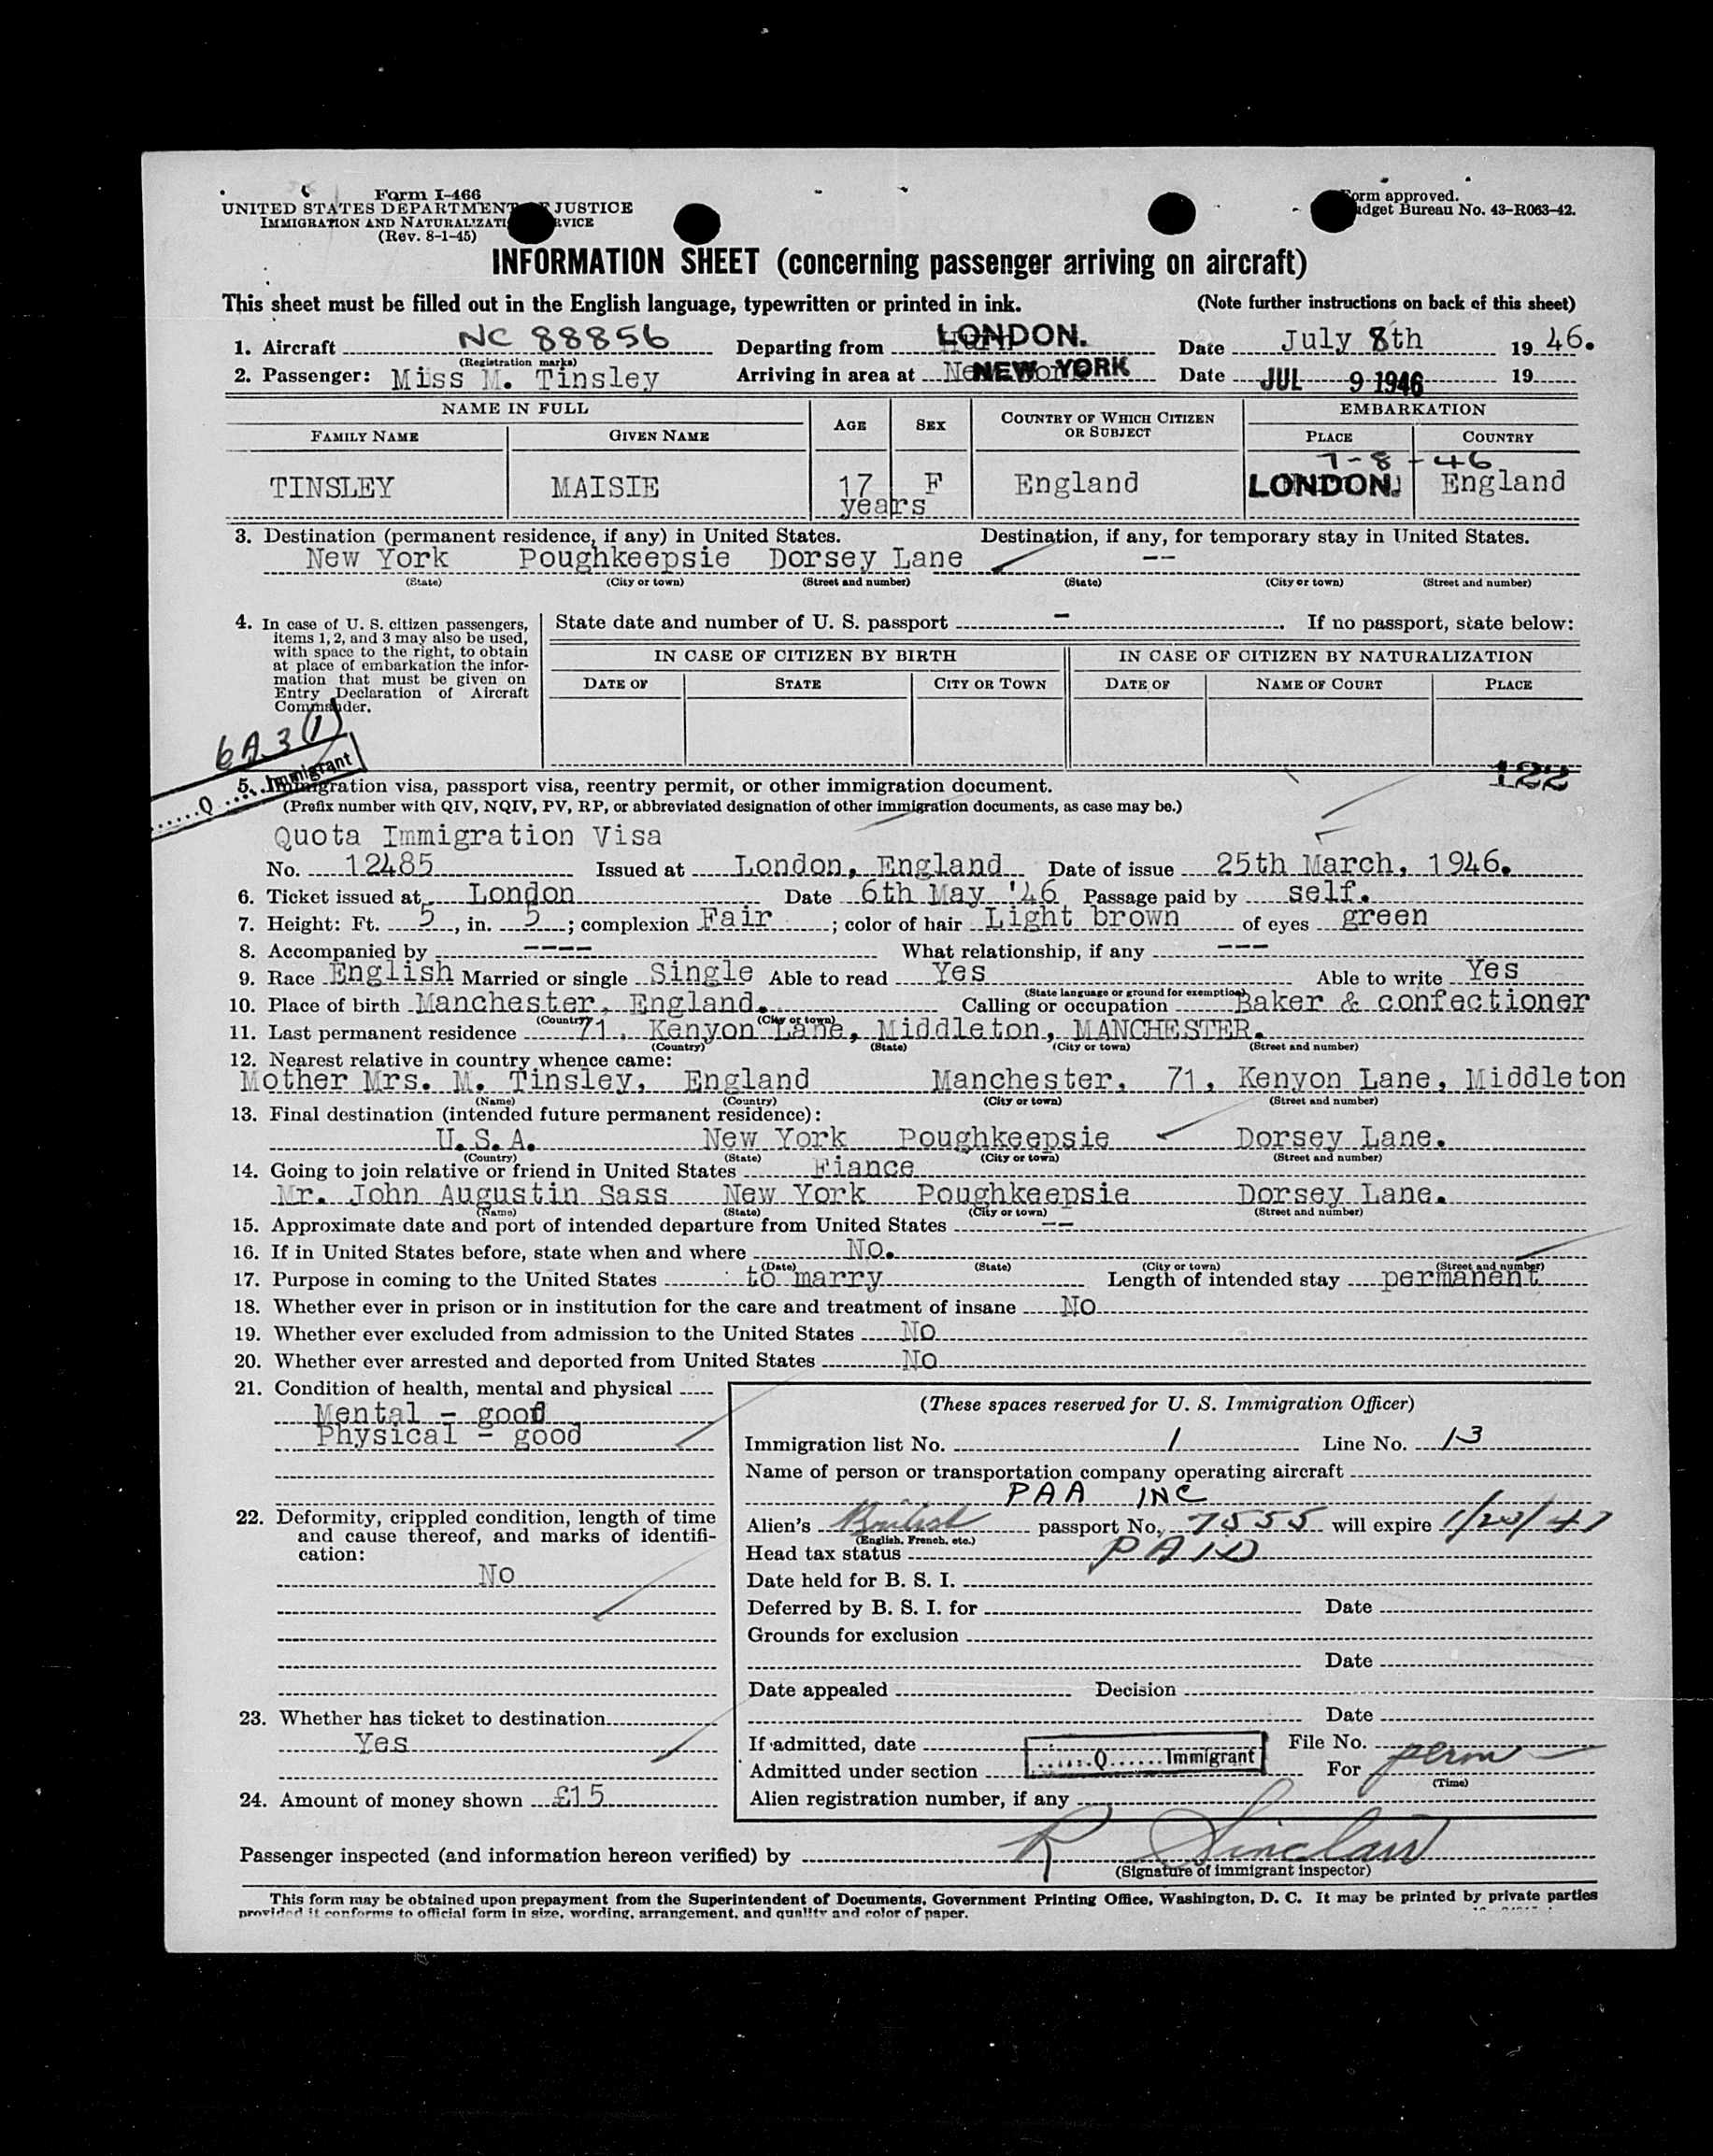 Form I-466
UNITED STATES DEPARTMENT OF JUSTICE
IMMIGRATION AND NATURALIZATION SERVICE
(Rev. 8-1-45)
Form approved.
Budget Bureau No. 43-R063-42.
INFORMATION SHEET (concerning passenger arriving on aircraft)
This sheet must be filled out in the English language, typewritten or printed in ink. (Note further instructions on back of this sheet)
1. Aircraft NC 88856 Departing from LONDON. Date July 8th 1946.
(Registration marks)
2. Passenger: Miss M. Tinsley Arriving in area at NEW YORK Date JUL 9 1946 19
NAME IN FULL AGE SEX COUNTRY OF WHICH CITIZEN OR SUBJECT EMBARKATION
FAMILY NAME GIVEN NAME PLACE COUNTRY
7-8-46
TINSLEY MAISIE 17 years F England LONDON England
3. Destination (permanent residence, if any) in United States. Destination, if any, for temporary stay in United States.
New York Poughkeepsie Dorsey Lane --
(State) (City or town) (Street and number) (State) (City or town) (Street and number)
4. In case of U. S. citizen passengers, items 1, 2, and 3 may also be used, with space to the right, to obtain at place of embarkation the information that must be given on Entry Declaration of Aircraft Commander.
State date and number of U. S. passport -. If no passport, state below:
IN CASE OF CITIZEN BY BIRTH IN CASE OF CITIZEN BY NATURALIZATION
DATE OF STATE CITY OR TOWN DATE OF NAME OF COURT PLACE
6A3(1)
Q Immigrant
122
5. Immigration visa, passport visa, reentry permit, or other immigration document.
(Prefix number with QIV, NQIV, PV, RP, or abbreviated designation of other immigration documents, as case may be.)
Quota Immigration Visa
No. 12485 Issued at London, England Date of issue 25th March, 1946.
6. Ticket issued at London Date 6th May '46 Passage paid by self.
7. Height: Ft. 5, in. 5; complexion Fair; color of hair Light brown of eyes green
8. Accompanied by ---- What relationship, if any ---
9. Race English Married or single Single Able to read Yes Able to write Yes
(State language or ground for exemption)
10. Place of birth Manchester, England. Calling or occupation Baker & confectioner
(Country) (City or town)
11. Last permanent residence 71, Kenyon Lane, Middleton, MANCHESTER.
(Country) (State) (City or town) (Street and number)
12. Nearest relative in country whence came:
Mother Mrs. M. Tinsley, England Manchester, 71, Kenyon Lane, Middleton
(Name) (Country) (City or town) (Street and number)
13. Final destination (intended future permanent residence):
U.S.A. New York Poughkeepsie Dorsey Lane.
(Country) (State) (City or town) (Street and number)
14. Going to join relative or friend in United States Fiance
Mr. John Augustin Sass New York Poughkeepsie Dorsey Lane.
(Name) (State) (City or town) (Street and number)
15. Approximate date and port of intended departure from United States --
16. If in United States before, state when and where No.
(Date) (State) (City or town) (Street and number)
17. Purpose in coming to the United States to marry Length of intended stay permanent
18. Whether ever in prison or in institution for the care and treatment of insane No
19. Whether ever excluded from admission to the United States No
20. Whether ever arrested and deported from United States No
21. Condition of health, mental and physical
Mental - good
Physical - good
22. Deformity, crippled condition, length of time and cause thereof, and marks of identification:
No
23. Whether has ticket to destination
Yes
24. Amount of money shown £15
(These spaces reserved for U. S. Immigration Officer)
Immigration list No. 1 Line No. 13
Name of person or transportation company operating aircraft
PAA INC
Alien's British passport No. 7555 will expire 1/23/47
(English, French, etc.)
Head tax status PAID
Date held for B. S. I.
Deferred by B. S. I. for Date
Grounds for exclusion
Date
Date appealed Decision
Date
If admitted, date File No.
Admitted under section Q Immigrant For perm
(Time)
Alien registration number, if any
Passenger inspected (and information hereon verified) by R Sinclair
(Signature of immigrant inspector)
This form may be obtained upon prepayment from the Superintendent of Documents, Government Printing Office, Washington, D. C. It may be printed by private parties
provided it conforms to official form in size, wording, arrangement, and quality and color of paper.